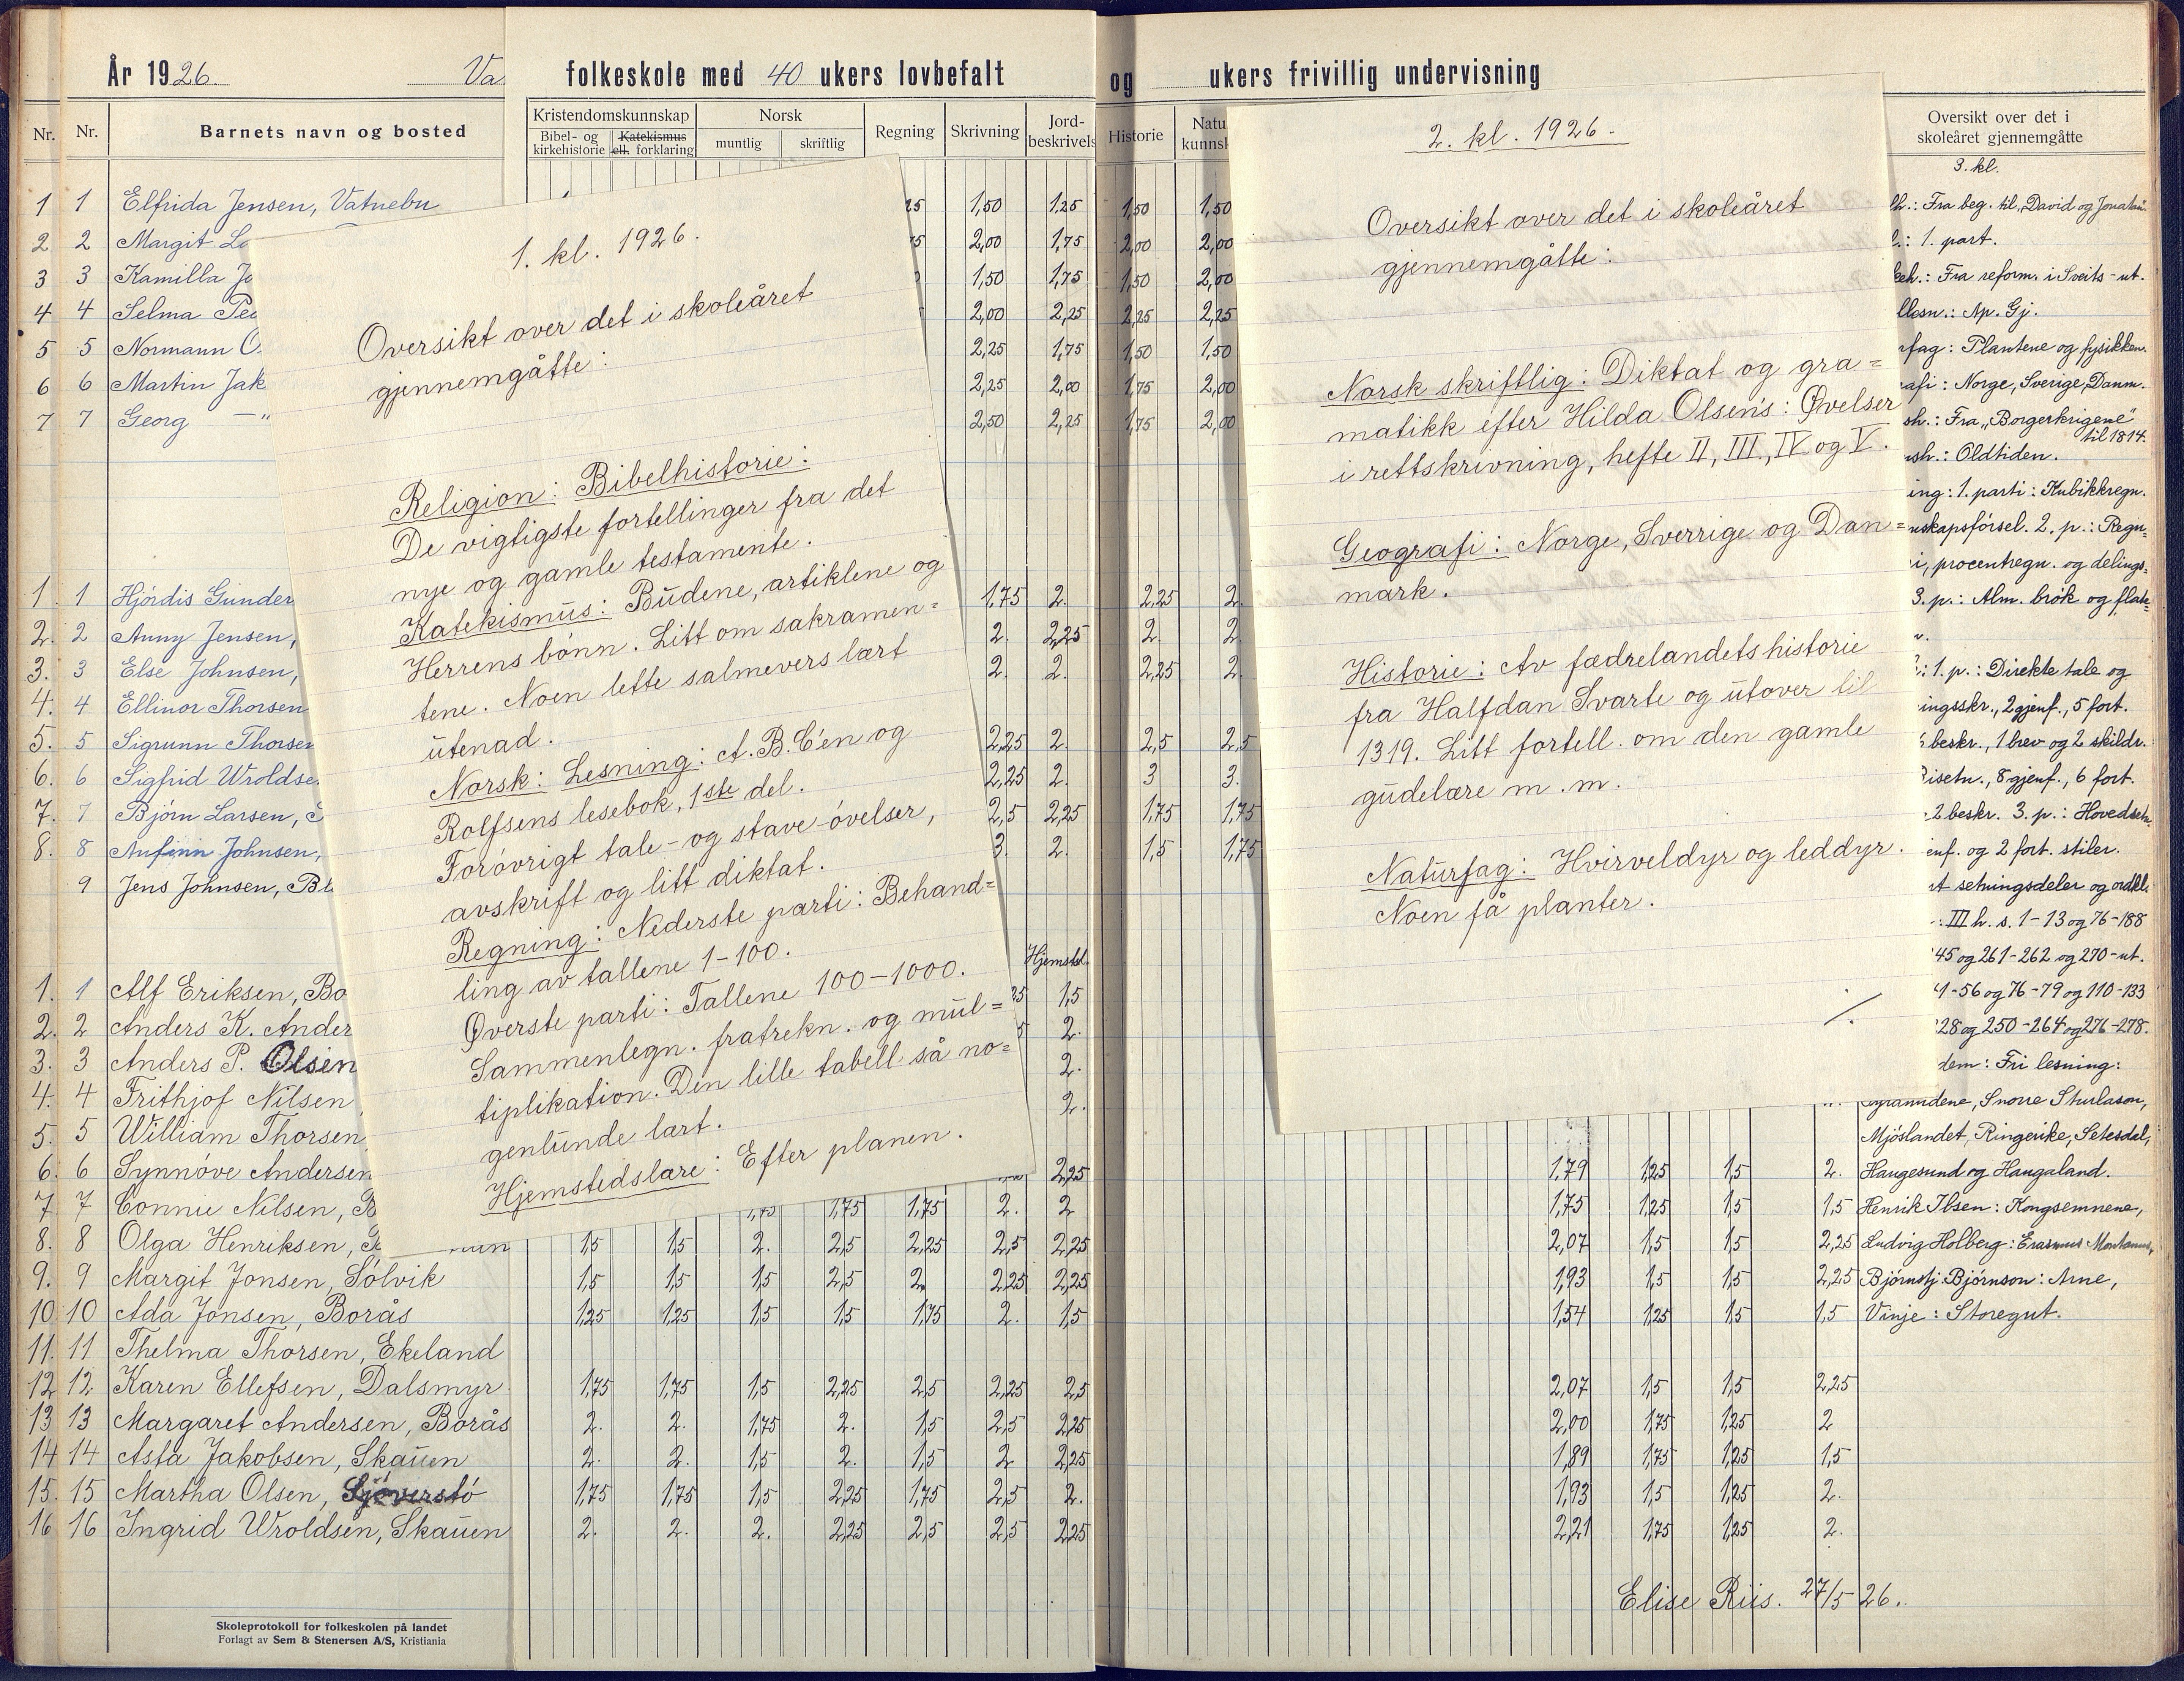 År 1926. Va folkeskole med 40 ukers lovbefalt og ukers frivillig undervisning
Nr. Nr. Barnets navn og bosted
Kristendomskunnskap Norsk Regning Skrivning Jord-
Bibel- og Katekismus muntlig skriftlig beskrivels
kirkehistorie ell. forklaring
Historie Natu
kunnsk
Oversikt over det i
skoleåret gjennemgåtte
1 1 Elfrida Jensen, Vatnebu 25 1,50 1,25 1,50 1,50
2 2 Margit 75 2,00 1,75 2,00 2,00
3 3 Kamilla 1,50 1,75 1,50 2,00
4 4 Selma 2,00 2,25 2,25 2,25
5 5 Normann 2,25 1,75 1,50 1,50
6 6 Martin Jak 2,25 2,00 1,75 2,00
7 7 Georg —"— 2,50 2,25 1,75 2,00
1. 1 Hjördis Gunder 1,75 2. 2,25 2.
2. 2 Anny Jensen, 2. 2,25 2. 2
3. 3 Else Johnsen, 2. 2. 2,25 2.
4. 4 Ellinor Thorsen
5. 5 Sigrunn Thorsen 2,25 2. 2,5 2,5
6. 6 Sigfrid Wroldse 2,25 2. 3 3.
7. 7 Björn Larsen, 2,5 2,25 1,75 1,75
8. 8 Anfinn Johnsen, 3. 2. 1,5 1,75
9 Jens Johnsen,
Hjemstd.
1. 1 Alf Eriksen, Bo 25 1,5
2. 2 Anders K. Ander 2.
3. 3 Anders P. Olsen 2.
4. 4 Frithjof Nilsen 2.
5. 5 William Thorsen
6. 6 Synnöve Andersen 2,25 1,79 1,25 1,5 2.
7. 7 Connie Nilsen, 1,75 1,75 1,75 2. 2 1,75 1,25 1,5 1,5
8. 8 Olga Henriksen, 1,5 1,5 2. 2,5 2,25 2,5 2,25 2,07 1,5 1,5 2,25
9. 9 Margit Jonsen, Sölvik 1,5 1,5 1,5 2,5 2. 2,25 2,25 1,93 1,5 1,5 2,25
10. 10 Ada Jonsen, Borås 1,25 1,25 1,5 1,5 1,75 2. 1,5 1,54 1,25 1,5 1,5
11. 11 Thelma Thorsen, Ekeland
12 12 Karen Ellefsen, Dalsmyr 1,75 1,75 1,5 2,25 2,5 2,25 2,5 2,07 1,5 1,5 2,25
13 13 Margaret Andersen, Borås 2. 2. 1,75 2. 1,5 2,5 2,25 2,00 1,75 1,25 2
14 14 Asta Jakobsen, Skauen 2. 2. 1,5 2. 1,5 2 2,25 1,89 1,75 1,25 1,5
15. 15 Martha Olsen, Sjöverstö 1,75 1,75 1,5 2,25 1,75 2,5 2. 1,93 1,5 1,25 2.
16 16 Ingrid Wroldsen, Skauen 2. 2. 2. 2,25 2,5 2,5 2,25 2,21 1,75 1,25 2.
Elise Riis. 27/5 26.
Skoleprotokoll for folkeskolen på landet
Forlagt av Sem & Stenersen A/S, Kristiania
1. kl. 1926.
Oversikt over det i skoleåret
gjennemgåtte:
Religion: Bibelhistorie:
De vigtigste fortellinger fra det
nye og gamle testamente.
Katekismus: Budene, artiklene og
Herrens bönn. Litt om sakramen=
tene. Noen lette salmevers lært
utenad.
Norsk: Lesning: A.B.C'en og
Rolfsens lesebok, 1ste del.
Forövrigt tale- og stave-övelser,
avskrift og litt diktat.
Regning: Nederste parti: Behand=
ling av tallene 1-100.
Øverste parti: Tallene 100-1000.
Sammenlegn. fratrekn. og mul=
tiplikation. Den lille tabell så no=
genlunde lært.
Hjemstedslære: Efter planen.
2. kl. 1926.
Oversikt over det i skoleåret
gjennemgåtte:
Norsk skriftlig: Diktat og gra=
matikk efter Hilda Olsen's: Øvelser
i rettskrivning, hefte II, III, IV og V.
Geografi: Norge, Sverrige og Dan=
mark.
Historie: Av fædrelandets historie
fra Halfdan Svarte og utover til
1319. Litt fortell. om den gamle
gudelære m.m.
Naturfag: Hvirveldyr og leddyr.
Noen få planter.
./.
3. kl.
lh.: Fra beg. til „David og Jonatan
1. part.
keh.: Fra reform. i Sveits-ut.
llesn.: Ap. Gj.
rfag: Plantene og fysikken.
rafi: Norge, Sverige, Danm.
sh.: Fra „Borgerkrigene"
til 1814.
sh.: Oldtiden.
ing: 1. parti: Kubikkregn.
nskapsförsel. 2. p.: Regu=
i, procentregn. og delings=
3. p.: Alm. brök og flate=
1. p.: Direkte tale og
ingsskr., 2 gjenf., 5 fort.
beskr., 1 brev og 2 skildr.
isetn., 8 gjenf., 6 fort.
2 beskr. 3. p.: Hovedsetn.
enf. og 2 fort. stiler.
t setningsdeler og ordkl.
: III h. s. 1-13 og 76-188
45 og 261-262 og 270-ut.
1-56 og 76-79 og 110-133
28 og 250-264 og 276-278.
dem: Fri lesning:
Snorre Sturlason,
Mjöslandet, Ringerike, Setesdal,
Haugesund og Haugaland.
Henrik Ibsen: Kongsemnene,
Ludvig Holberg: Erasmus Montanus,
Björnstj. Björnson: Arne,
Vinje: Storegut.